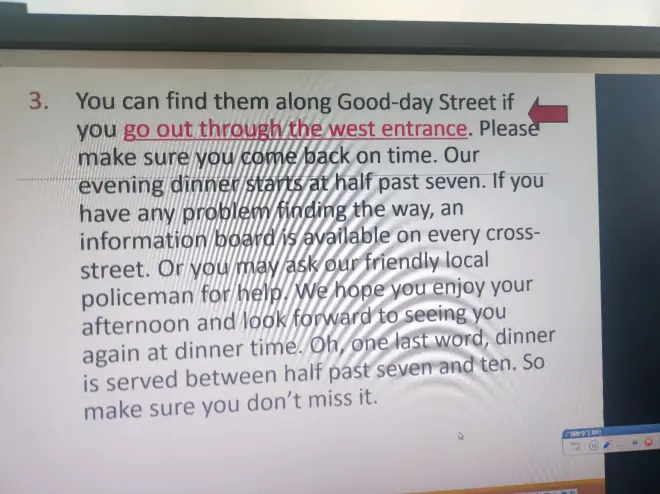 3. You can find them along Good-day Street if
you go out through the west entrance. Please
make sure you come back on time. Our
evening dinner starts at half past seven. If you
have any problem finding the way, an
information board is available on every cross-
street. Or you may ask our friendly local
policeman for help. We hope you enjoy your
afternoon and look forward to seeing you
again at dinner time. Oh, one last word, dinner
is served between half past seven and ten. So
make sure you don't miss it.